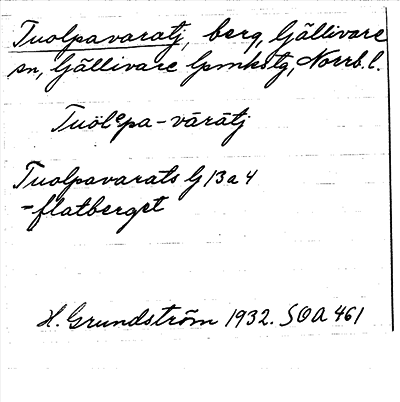 Tuolpavaratj, berg, Gällivare
sn, Gällivare lpmkstg, Norrb. l.
Tuolᵉpa-vārātj
Tuolpavarats G 13 a 4
=flatberget
H. Grundström 1932. SOA 461